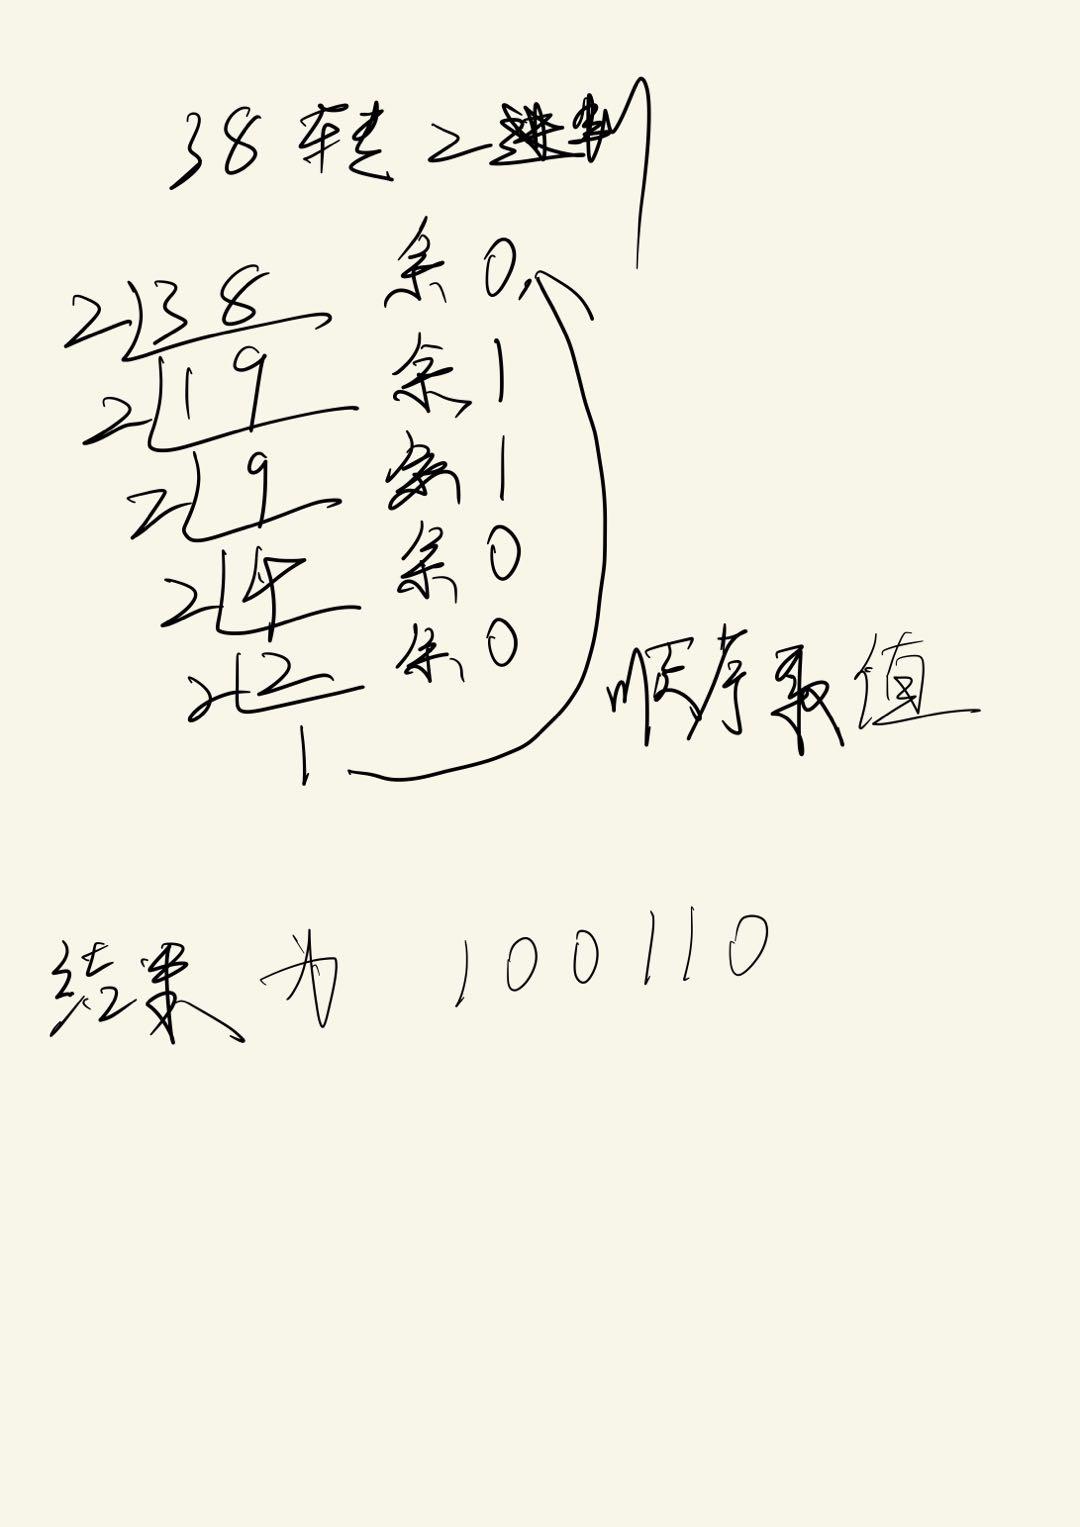 38转2进制
2 38 余 0
2 19 余 1
2 9 余 1
2 4 余 0
2 2 余 0
1
顺序取值
结果为 100110